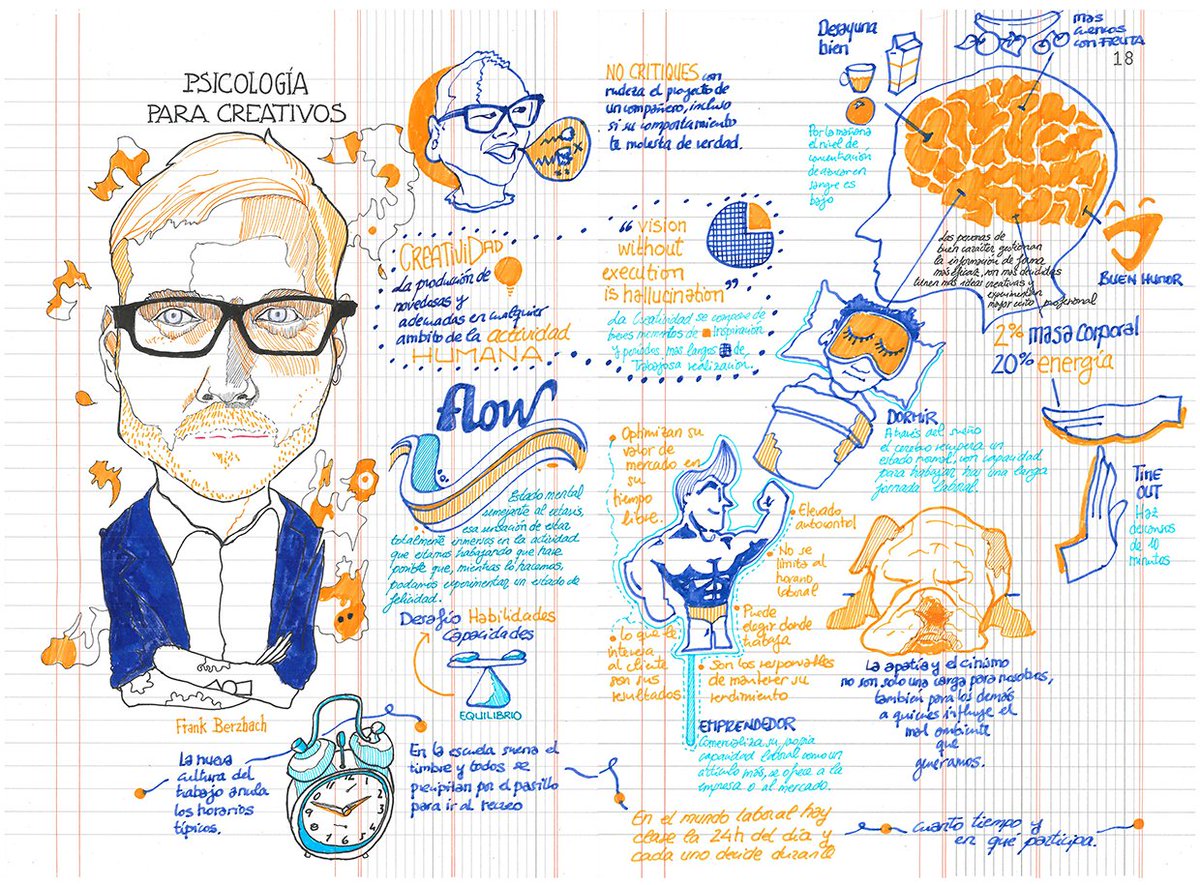 PSICOLOGÍA
PARA CREATIVOS
Frank Berzbach
La nueva
cultura del
trabajo anula
los horarios
típicos.
NO CRITIQUES con
rudeza el proyecto de
un compañero, incluso
si su comportamiento
te molesta de verdad.
CREATIVIDAD
La producción de
novedosas y
adecuadas en cualquier
ambito de la actividad
HUMANA
“ vision
without
execution
is hallucination ”
La Creatividad se compone de
breves momentos de inspiración
y periodos mas largos de
trabajosa realización.
flow
Estado mental
semejante al extasis,
esa sensación de estar
totalmente inmersos en la actividad
que estamos trabajando que hace
posible que, mientras lo hacemos,
podamos experimentar un estado de
felicidad.
Desafío Habilidades
Capacidades
EQUILIBRIO
En la escuela suena el
timbre y todos se
precipitan por el pasillo
para ir al recreo
En el mundo laboral hay
clase la 24h del día y
cada uno decide durante
cuanto tiempo y
en qué participa.
Optimizan su
valor de
mercado en
su
tiempo
libre.
Elevado
autocontrol
No se
limita al
horario
laboral
Puede
elegir donde
trabaja
Lo que le
interesa
al cliente
son sus
resultados
Son los responsables
de mantener su
rendimiento
EMPRENDEDOR
Comercializa su propia
capacidad laboral como un
artículo más, se ofrece a la
empresa o al mercado.
Desayuna
bien
mas
cuencos
con FRUTA
18
Por la mañana
el nivel de
concentración
de azucar en
sangre es
bajo
Las personas de
buen carácter gestionan
la información de forma
más eficaz, son mas decididas
tienen más ideas creativas y
experimentan
mayor exito profesional
BUEN HUMOR
2% masa corporal
20% energía
DORMIR
A través del sueño
el cerebro recupera un
estado normal, con capacidad
para trabajar, tras una larga
jornada laboral.
TIME
OUT
Haz
descansos
de 10
minutos
La apatía y el cinismo
no son solo una carga para nosotros,
también para los demás
a quienes influye el
mal ambiente
que
generamos.